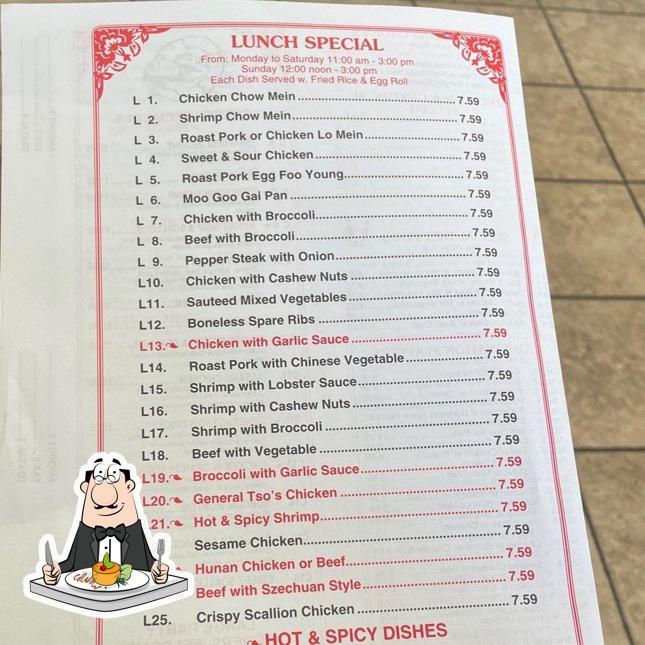 LUNCH SPECIAL
From: Monday to Saturday 11:00 am - 3:00 pm
Sunday 12:00 noon - 3:00 pm
Each Dish Served w. Fried Rice & Egg Roll
L 1. Chicken Chow Mein 7.59
L 2. Shrimp Chow Mein 7.59
L 3. Roast Pork or Chicken Lo Mein 7.59
L 4. Sweet & Sour Chicken 7.59
L 5. Roast Pork Egg Foo Young 7.59
L 6. Moo Goo Gai Pan 7.59
L 7. Chicken with Broccoli 7.59
L 8. Beef with Broccoli 7.59
L 9. Pepper Steak with Onion 7.59
L10. Chicken with Cashew Nuts 7.59
L11. Sauteed Mixed Vegetables 7.59
L12. Boneless Spare Ribs 7.59
L13. Chicken with Garlic Sauce 7.59
L14. Roast Pork with Chinese Vegetable 7.59
L15. Shrimp with Lobster Sauce 7.59
L16. Shrimp with Cashew Nuts 7.59
L17. Shrimp with Broccoli 7.59
L18. Beef with Vegetable 7.59
L19. Broccoli with Garlic Sauce 7.59
L20. General Tso's Chicken 7.59
21. Hot & Spicy Shrimp 7.59
Sesame Chicken 7.59
Hunan Chicken or Beef 7.59
Beef with Szechuan Style 7.59
L25. Crispy Scallion Chicken 7.59
HOT & SPICY DISHES